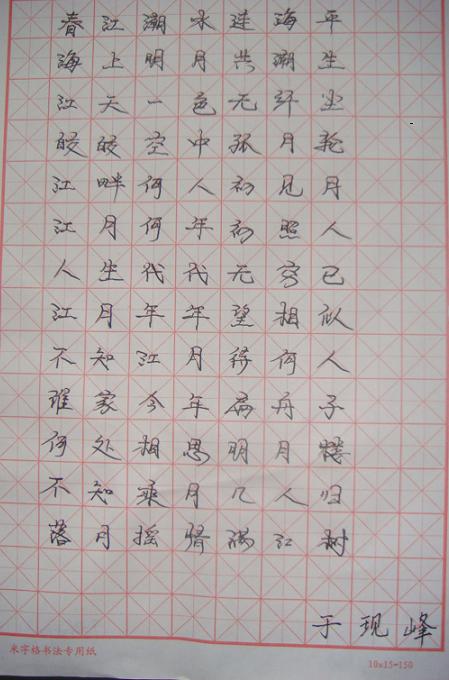 春江潮水连海平
海上明月共潮生
江天一色无纤尘
皎皎空中孤月轮
江畔何人初见月
江月何年初照人
人生代代无穷已
江月年年望相似
不知江月待何人
谁家今年扁舟子
何处相思明月楼
不知乘月几人归
落月摇情满江树
于现峰
米字格书法专用纸
10x15=150